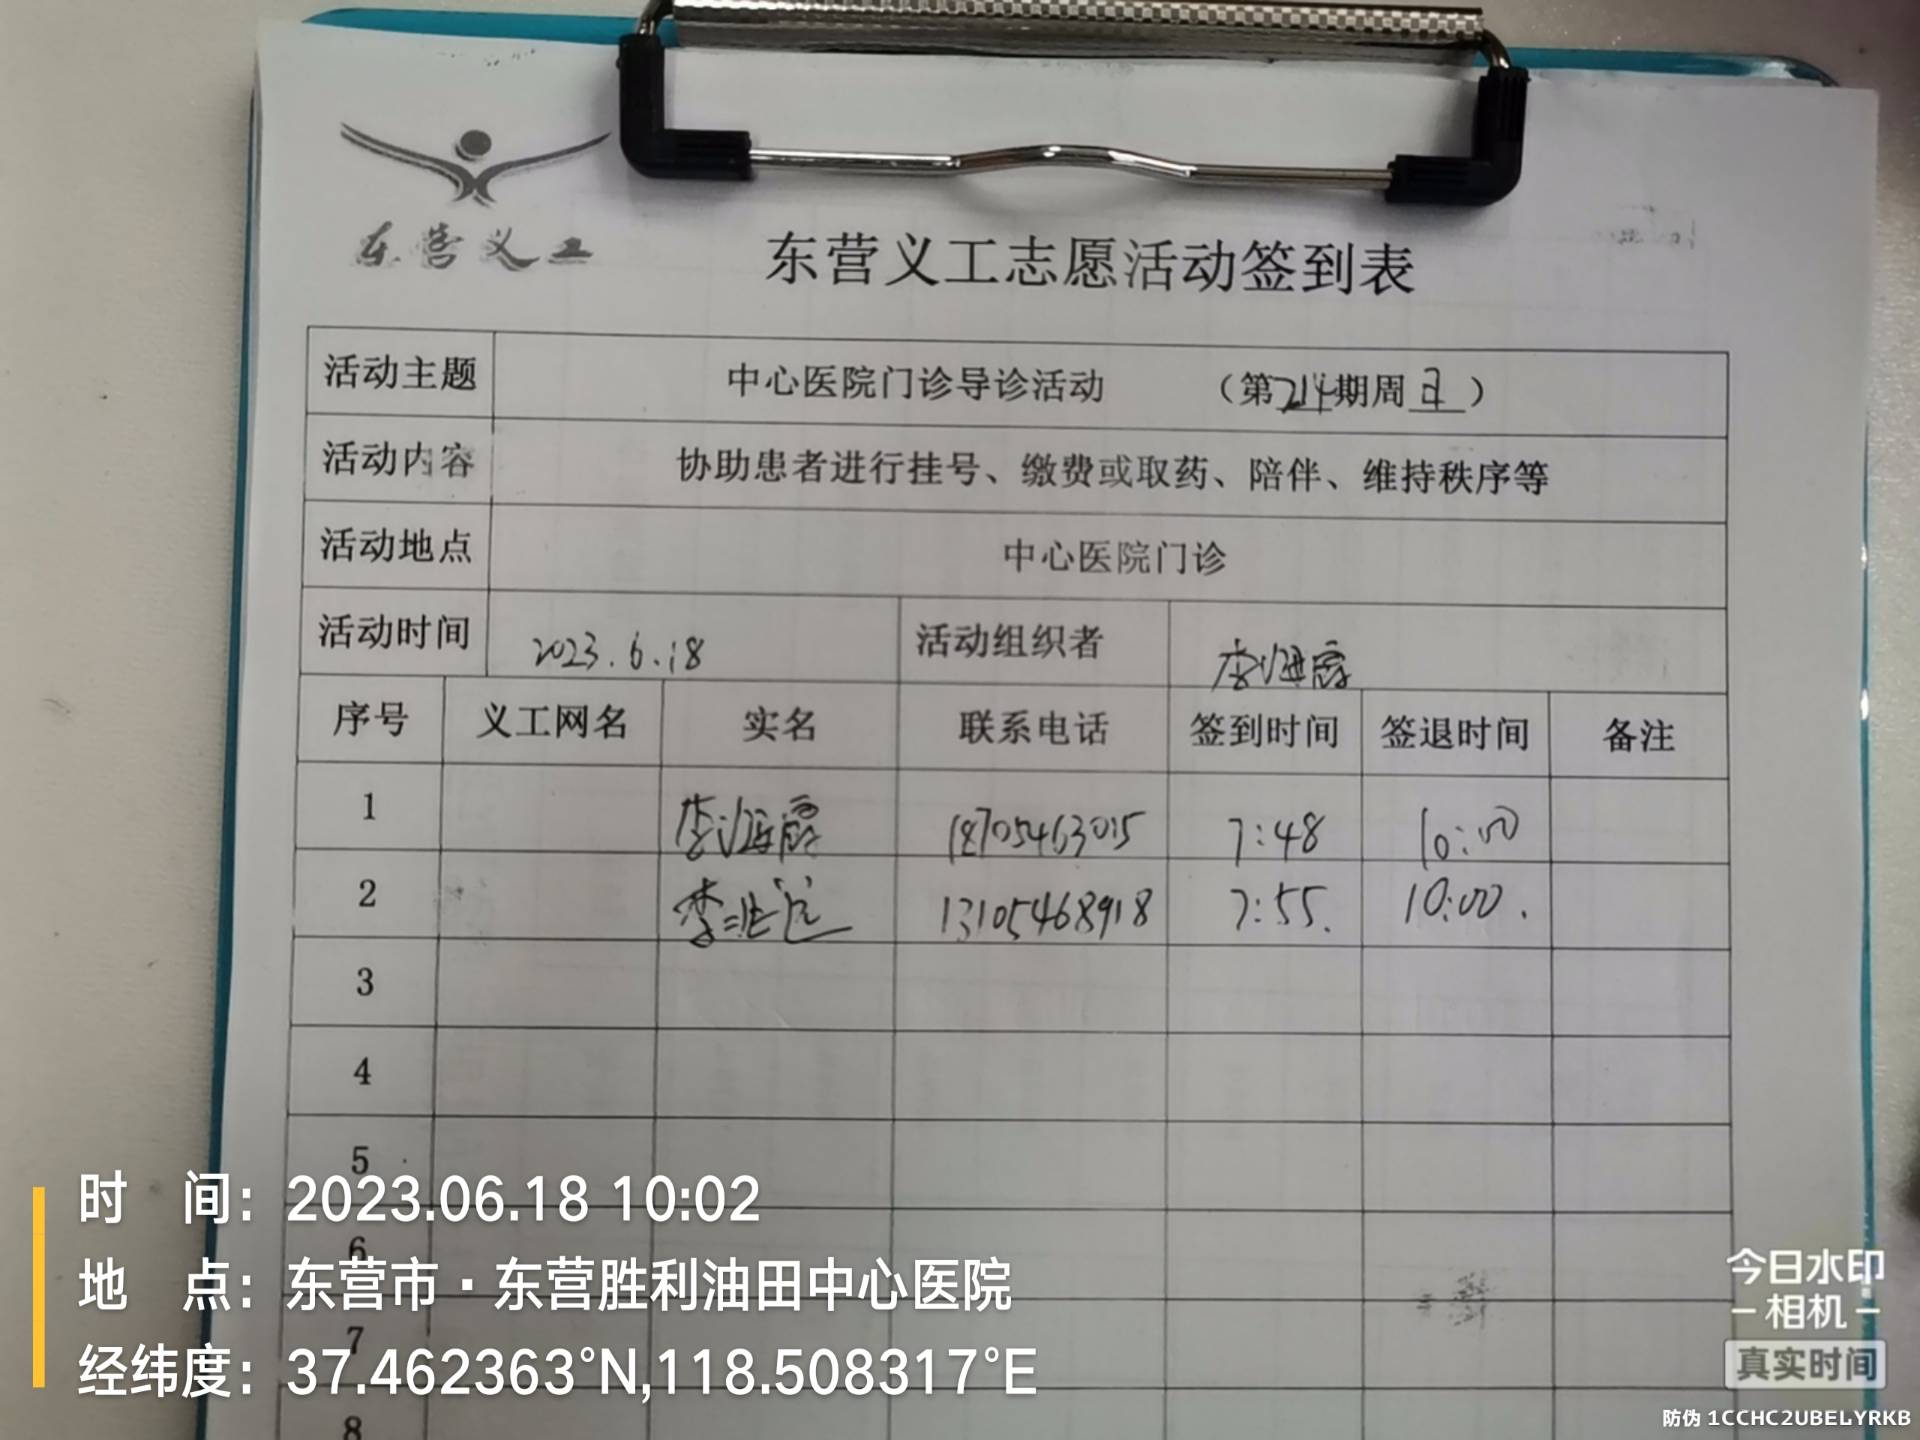 东营义工
东营义工志愿活动签到表
活动主题 中心医院门诊导诊活动 （第214期周日）
活动内容 协助患者进行挂号、缴费或取药、陪伴、维持秩序等
活动地点 中心医院门诊
活动时间 2023.6.18 活动组织者 李海霞
序号 义工网名 实名 联系电话 签到时间 签退时间 备注
1 李海霞 18705463015 7:48 10:00
2 李 13105468918 7:55. 10:00.
3
4
5
6
7
8
时 间：2023.06.18 10:02
地 点：东营市·东营胜利油田中心医院
经纬度：37.462363°N,118.508317°E
今日水印
相机
真实时间
防伪 1CCHC2UBELYRKB